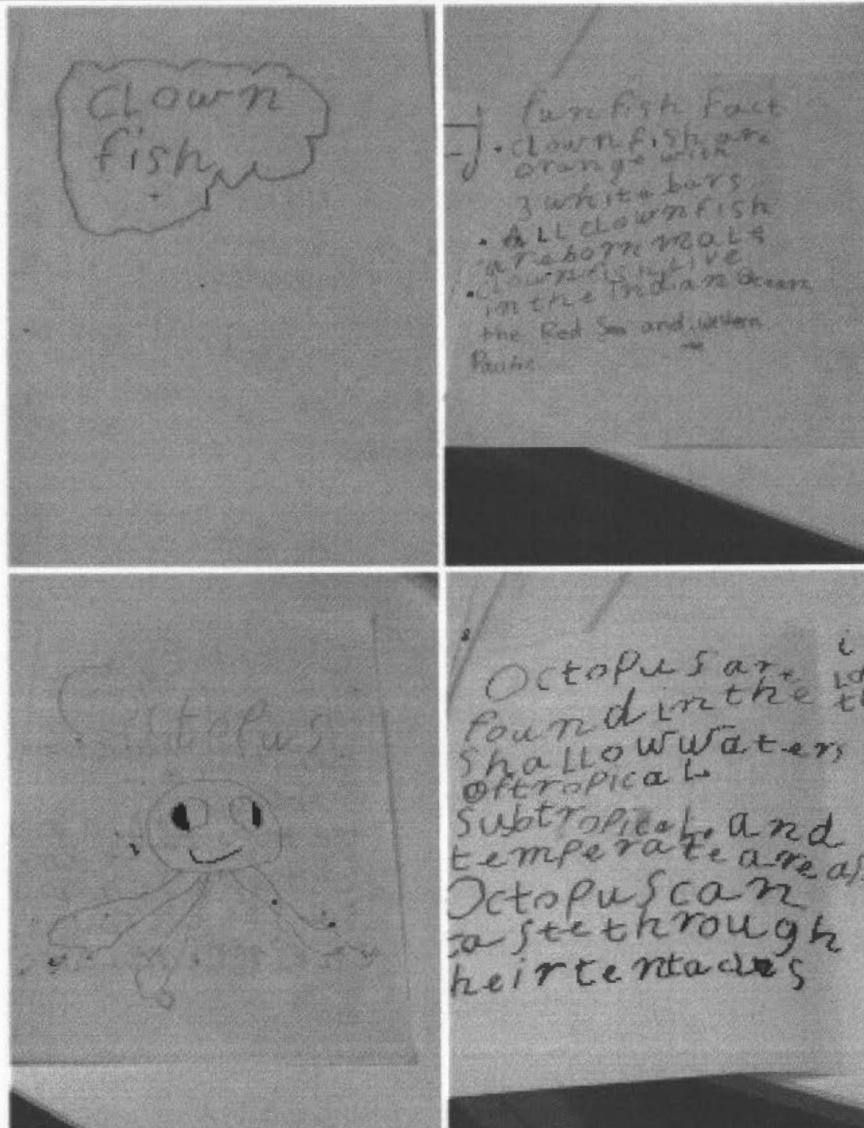 clown
fish
fun fish fact
• clown fish are
orange with
3 white bars
• ALL clown fish
are born male
• clown fish Live
in the indian Ocean
the Red Sea and western
Pacific
Octopus
Octopus are
found in the
shallow waters
of tropical
subtropical and
temperate areas
Octopus can
taste through
heir tentacles